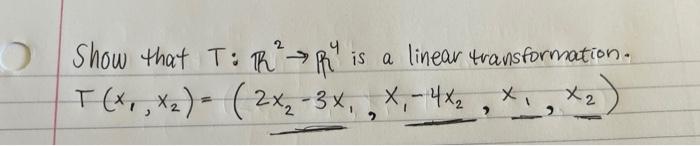 Show that T: ℝ² → ℝ⁴ is a linear transformation.
T(x₁, x₂) = (2x₂ - 3x₁, x₁ - 4x₂, x₁, x₂)